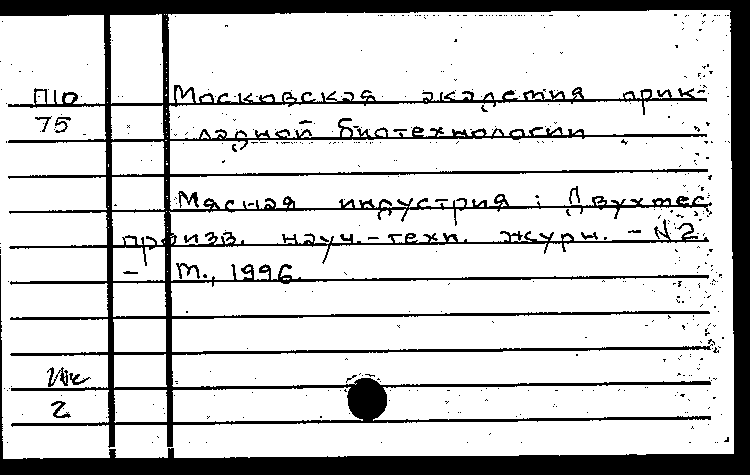 П10 Московская академия прик-
75 ладной биотехнологии
Мясная индустрия : Двухмес.
произв. науч.-техн. журн. - N 2.
- М., 1996.
2